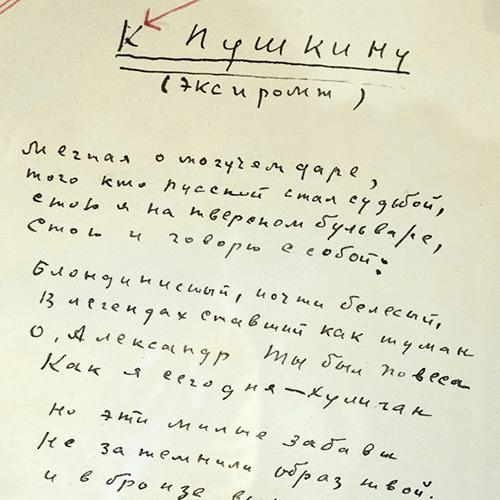 К Пушкину
(экспромт)
Мечтая о могучем даре,
того кто русской стал судьбой,
стою я на тверском бульваре,
Стою и говорю с собой:
Блондинистый, почти белесый,
В легендах ставший как туман
О, Александр Ты был повеса
Как я сегодня—хулиган
Но эти милые забавы
Не затемнили образ твой.
и в бронзе